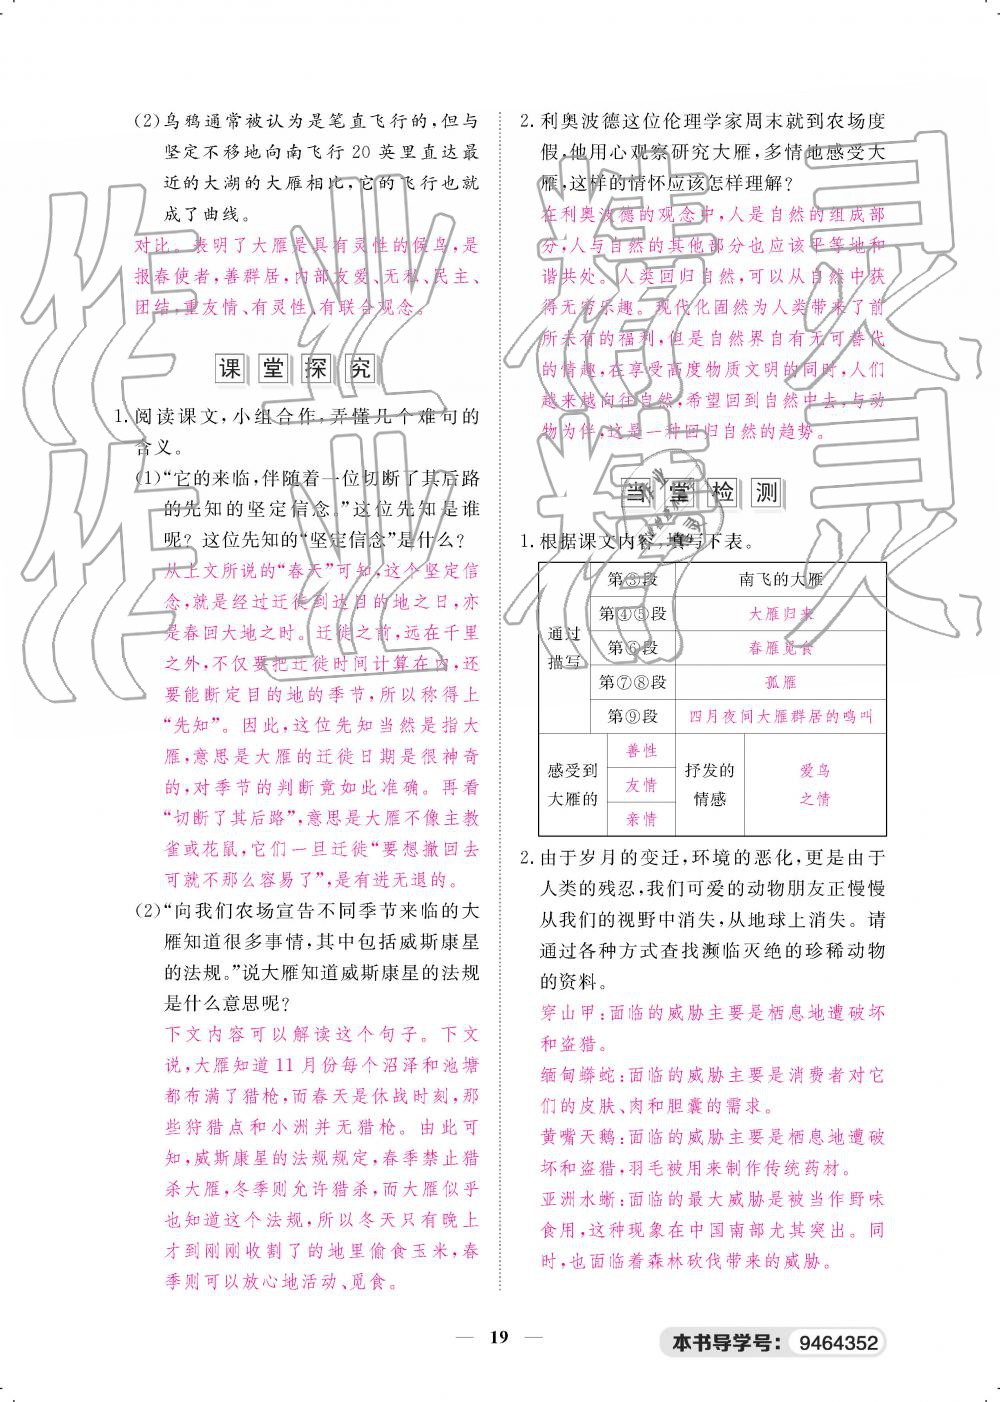 (2)乌鸦通常被认为是笔直飞行的,但与
坚定不移地向南飞行 20 英里直达最
近的大湖的大雁相比,它的飞行也就
成了曲线。
对比。表明了大雁是具有灵性的候鸟,是
报春使者,善群居,内部友爱、无私、民主、
团结,重友情、有灵性、有联合观念。
课堂探究
1.阅读课文,小组合作,弄懂几个难句的
含义。
(1)“它的来临,伴随着一位切断了其后路
的先知的坚定信念。”这位先知是谁
呢?这位先知的“坚定信念”是什么?
从上文所说的“春天”可知,这个坚定信
念,就是经过迁徙到达目的地之日,亦
是春回大地之时。迁徙之前,远在千里
之外,不仅要把迁徙时间计算在内,还
要能断定目的地的季节,所以称得上
“先知”。因此,这位先知当然是指大
雁,意思是大雁的迁徙日期是很神奇
的,对季节的判断竟如此准确。再看
“切断了其后路”,意思是大雁不像主教
雀或花鼠,它们一旦迁徙“要想撤回去
可就不那么容易了”,是有进无退的。
(2)“向我们农场宣告不同季节来临的大
雁知道很多事情,其中包括威斯康星
的法规。”说大雁知道威斯康星的法规
是什么意思呢?
下文内容可以解读这个句子。下文
说,大雁知道 11 月份每个沼泽和池塘
都布满了猎枪,而春天是休战时刻,那
些狩猎点和小洲并无猎枪。由此可
知,威斯康星的法规规定,春季禁止猎
杀大雁,冬季则允许猎杀,而大雁似乎
也知道这个法规,所以冬天只有晚上
才到刚刚收割了的地里偷食玉米,春
季则可以放心地活动、觅食。
2.利奥波德这位伦理学家周末就到农场度
假,他用心观察研究大雁,多情地感受大
雁,这样的情怀应该怎样理解?
在利奥波德的观念中,人是自然的组成部
分,人与自然的其他部分也应该平等地和
谐共处。人类回归自然,可以从自然中获
得无穷乐趣。现代化固然为人类带来了前
所未有的福利,但是自然界自有无可替代
的情趣,在享受高度物质文明的同时,人们
越来越向往自然,希望回到自然中去,与动
物为伴,这是一种回归自然的趋势。
当堂检测
1.根据课文内容,填写下表。
通过描写
第③段 南飞的大雁
第④⑤段 大雁归来
第⑥段 春雁觅食
第⑦⑧段 孤雁
第⑨段 四月夜间大雁群居的鸣叫
感受到大雁的
善性
友情
亲情
抒发的情感
爱鸟之情
2.由于岁月的变迁,环境的恶化,更是由于
人类的残忍,我们可爱的动物朋友正慢慢
从我们的视野中消失,从地球上消失。请
通过各种方式查找濒临灭绝的珍稀动物
的资料。
穿山甲:面临的威胁主要是栖息地遭破坏
和盗猎。
缅甸蟒蛇:面临的威胁主要是消费者对它
们的皮肤、肉和胆囊的需求。
黄嘴天鹅:面临的威胁主要是栖息地遭破
坏和盗猎,羽毛被用来制作传统药材。
亚洲水蜥:面临的最大威胁是被当作野味
食用,这种现象在中国南部尤其突出。同
时,也面临着森林砍伐带来的威胁。
— 19 —
本书导学号:9464352
作业精灵
作业精灵